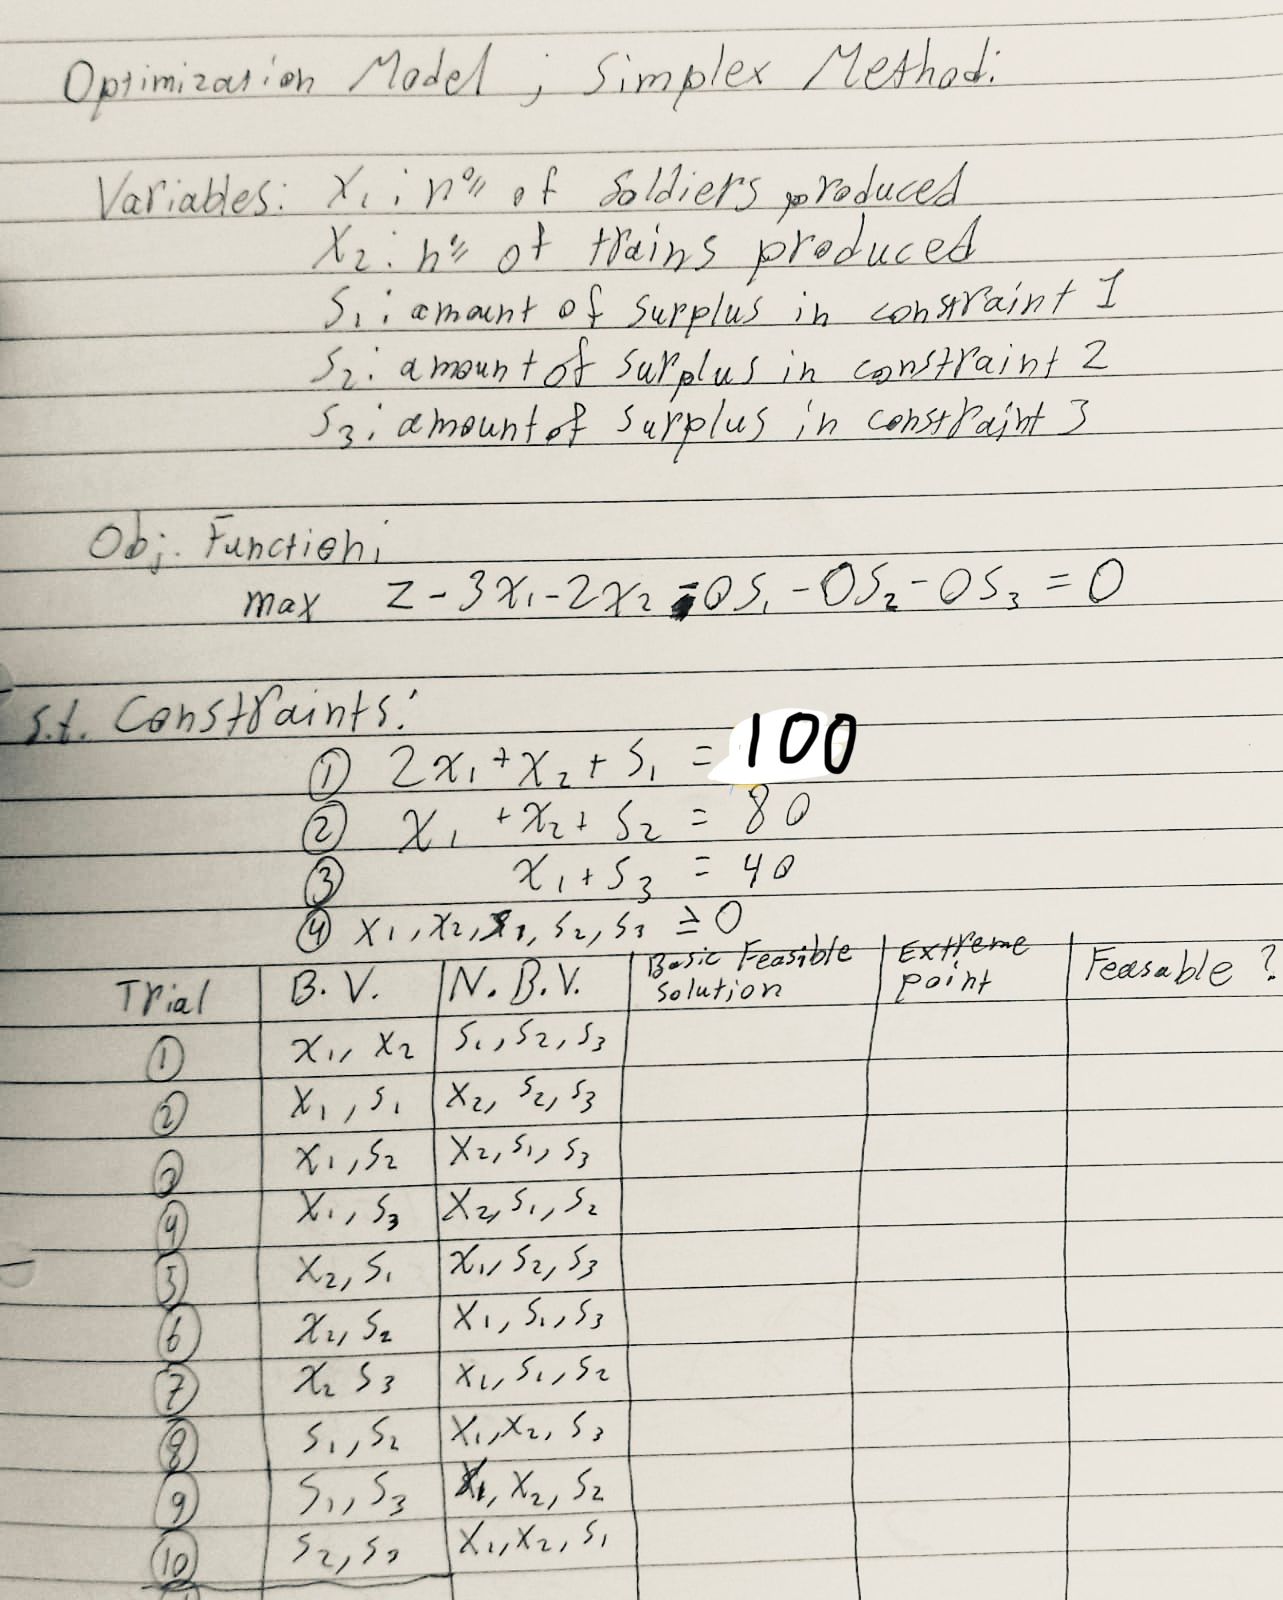 Optimization Model ; Simplex Method:
Variables: X₁ : nº of Soldiers produced
X₂ : nº of trains produced
S₁ : amount of surplus in constraint 1
S₂ : amount of surplus in constraint 2
S₃ : amount of surplus in constraint 3
Obj. Function:
max Z - 3X₁ - 2X₂ - 0S₁ - 0S₂ - 0S₃ = 0
s.t. Constraints:
① 2X₁ + X₂ + S₁ = 100
② X₁ + X₂ + S₂ = 80
③ X₁ + S₃ = 40
④ X₁, X₂, S₁, S₂, S₃ ≥ 0
Trial B. V. N. B. V. Basic Feasible Solution Extreme point Feasable ?
① X₁, X₂ S₁, S₂, S₃
② X₁, S₁ X₂, S₂, S₃
③ X₁, S₂ X₂, S₁, S₃
④ X₁, S₃ X₂, S₁, S₂
⑤ X₂, S₁ X₁, S₂, S₃
⑥ X₂, S₂ X₁, S₁, S₃
⑦ X₂ S₃ X₁, S₁, S₂
⑧ S₁, S₂ X₁, X₂, S₃
⑨ S₁, S₃ X₁, X₂, S₂
⑩ S₂, S₃ X₁, X₂, S₁